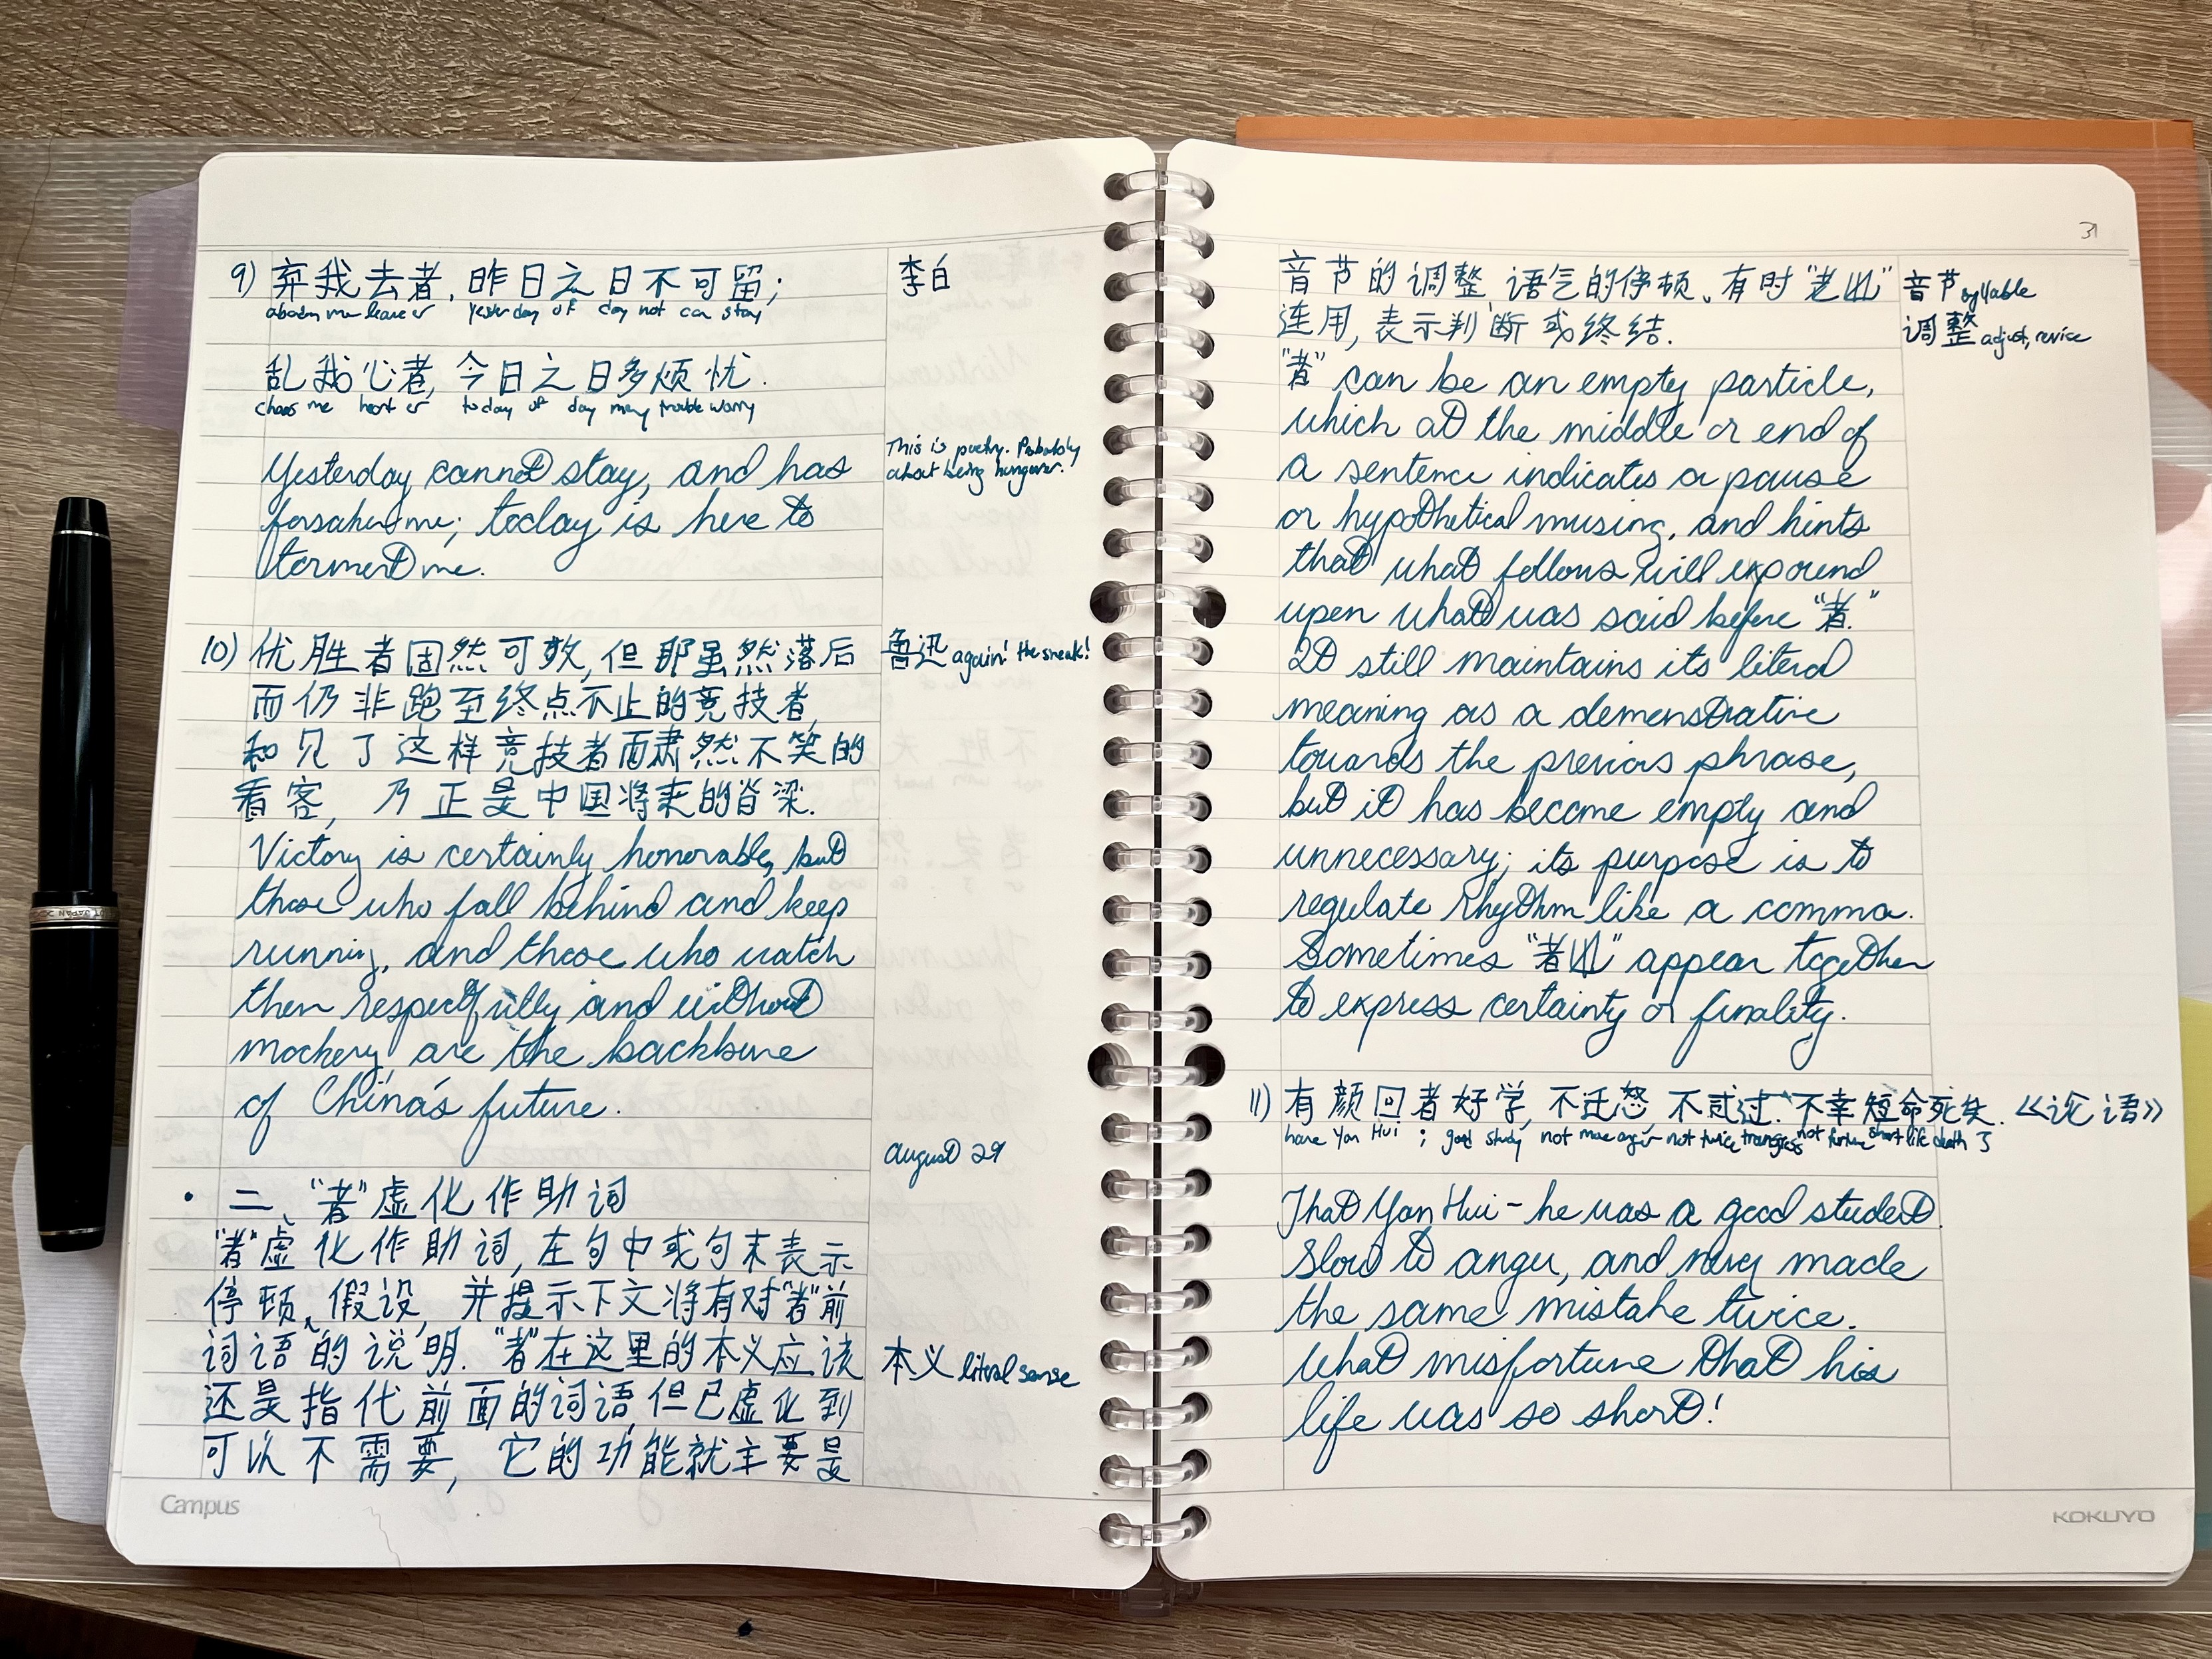 9) 弃我去者, 昨日之日不可留;
李白
abadon me leave er yesterday of day not can stay
乱我心者, 今日之日多烦忧.
chaos me heart er today of day many trouble worry
Yesterday cannot stay, and has
forsaken me; today is here to
torment me.
This is poetry. Probably
about being hungover.
10) 优胜者固然可敬, 但那虽然落后
而仍非跑至终点不止的竞技者,
和见了这样竞技者而肃然不笑的
看客, 乃正是中国将来的脊梁.
鲁迅 again! The sneak!
Victory is certainly honorable, but
those who fall behind and keep
running, and those who watch
them respectfully and without
mockery, are the backbone
of China's future.
August 29
• 二、"者"虚化作助词
"者"虚化作助词, 在句中或句末表示
停顿、假设, 并提示下文将有对"者"前
词语的说明. "者"在这里的本义应该
还是指代前面的词语, 但已虚化到
可以不需要, 它的功能就主要是
本义 literal sense
Campus
31
音节的调整、语气的停顿、有时"者也"
连用, 表示判断或终结.
音节 syllable
调整 adjust, revise
"者" can be an empty particle,
which at the middle or end of
a sentence indicates a pause
or hypothetical musing, and hints
that what follows will expound
upon what was said before "者."
It still maintains its literal
meaning as a demonstrative
towards the previous phrase,
but it has become empty and
unnecessary; its purpose is to
regulate rhythm like a comma.
Sometimes "者也" appear together
to express certainty or finality.
11) 有颜回者好学, 不迁怒, 不贰过. 不幸短命死矣. 《论语》
have Yan Hui ; good study not move anger not twice transgress not fortune short life death 了
That Yan Hui - he was a good student
slow to anger, and never made
the same mistake twice.
What misfortune that his
life was so short!
KOKUYO